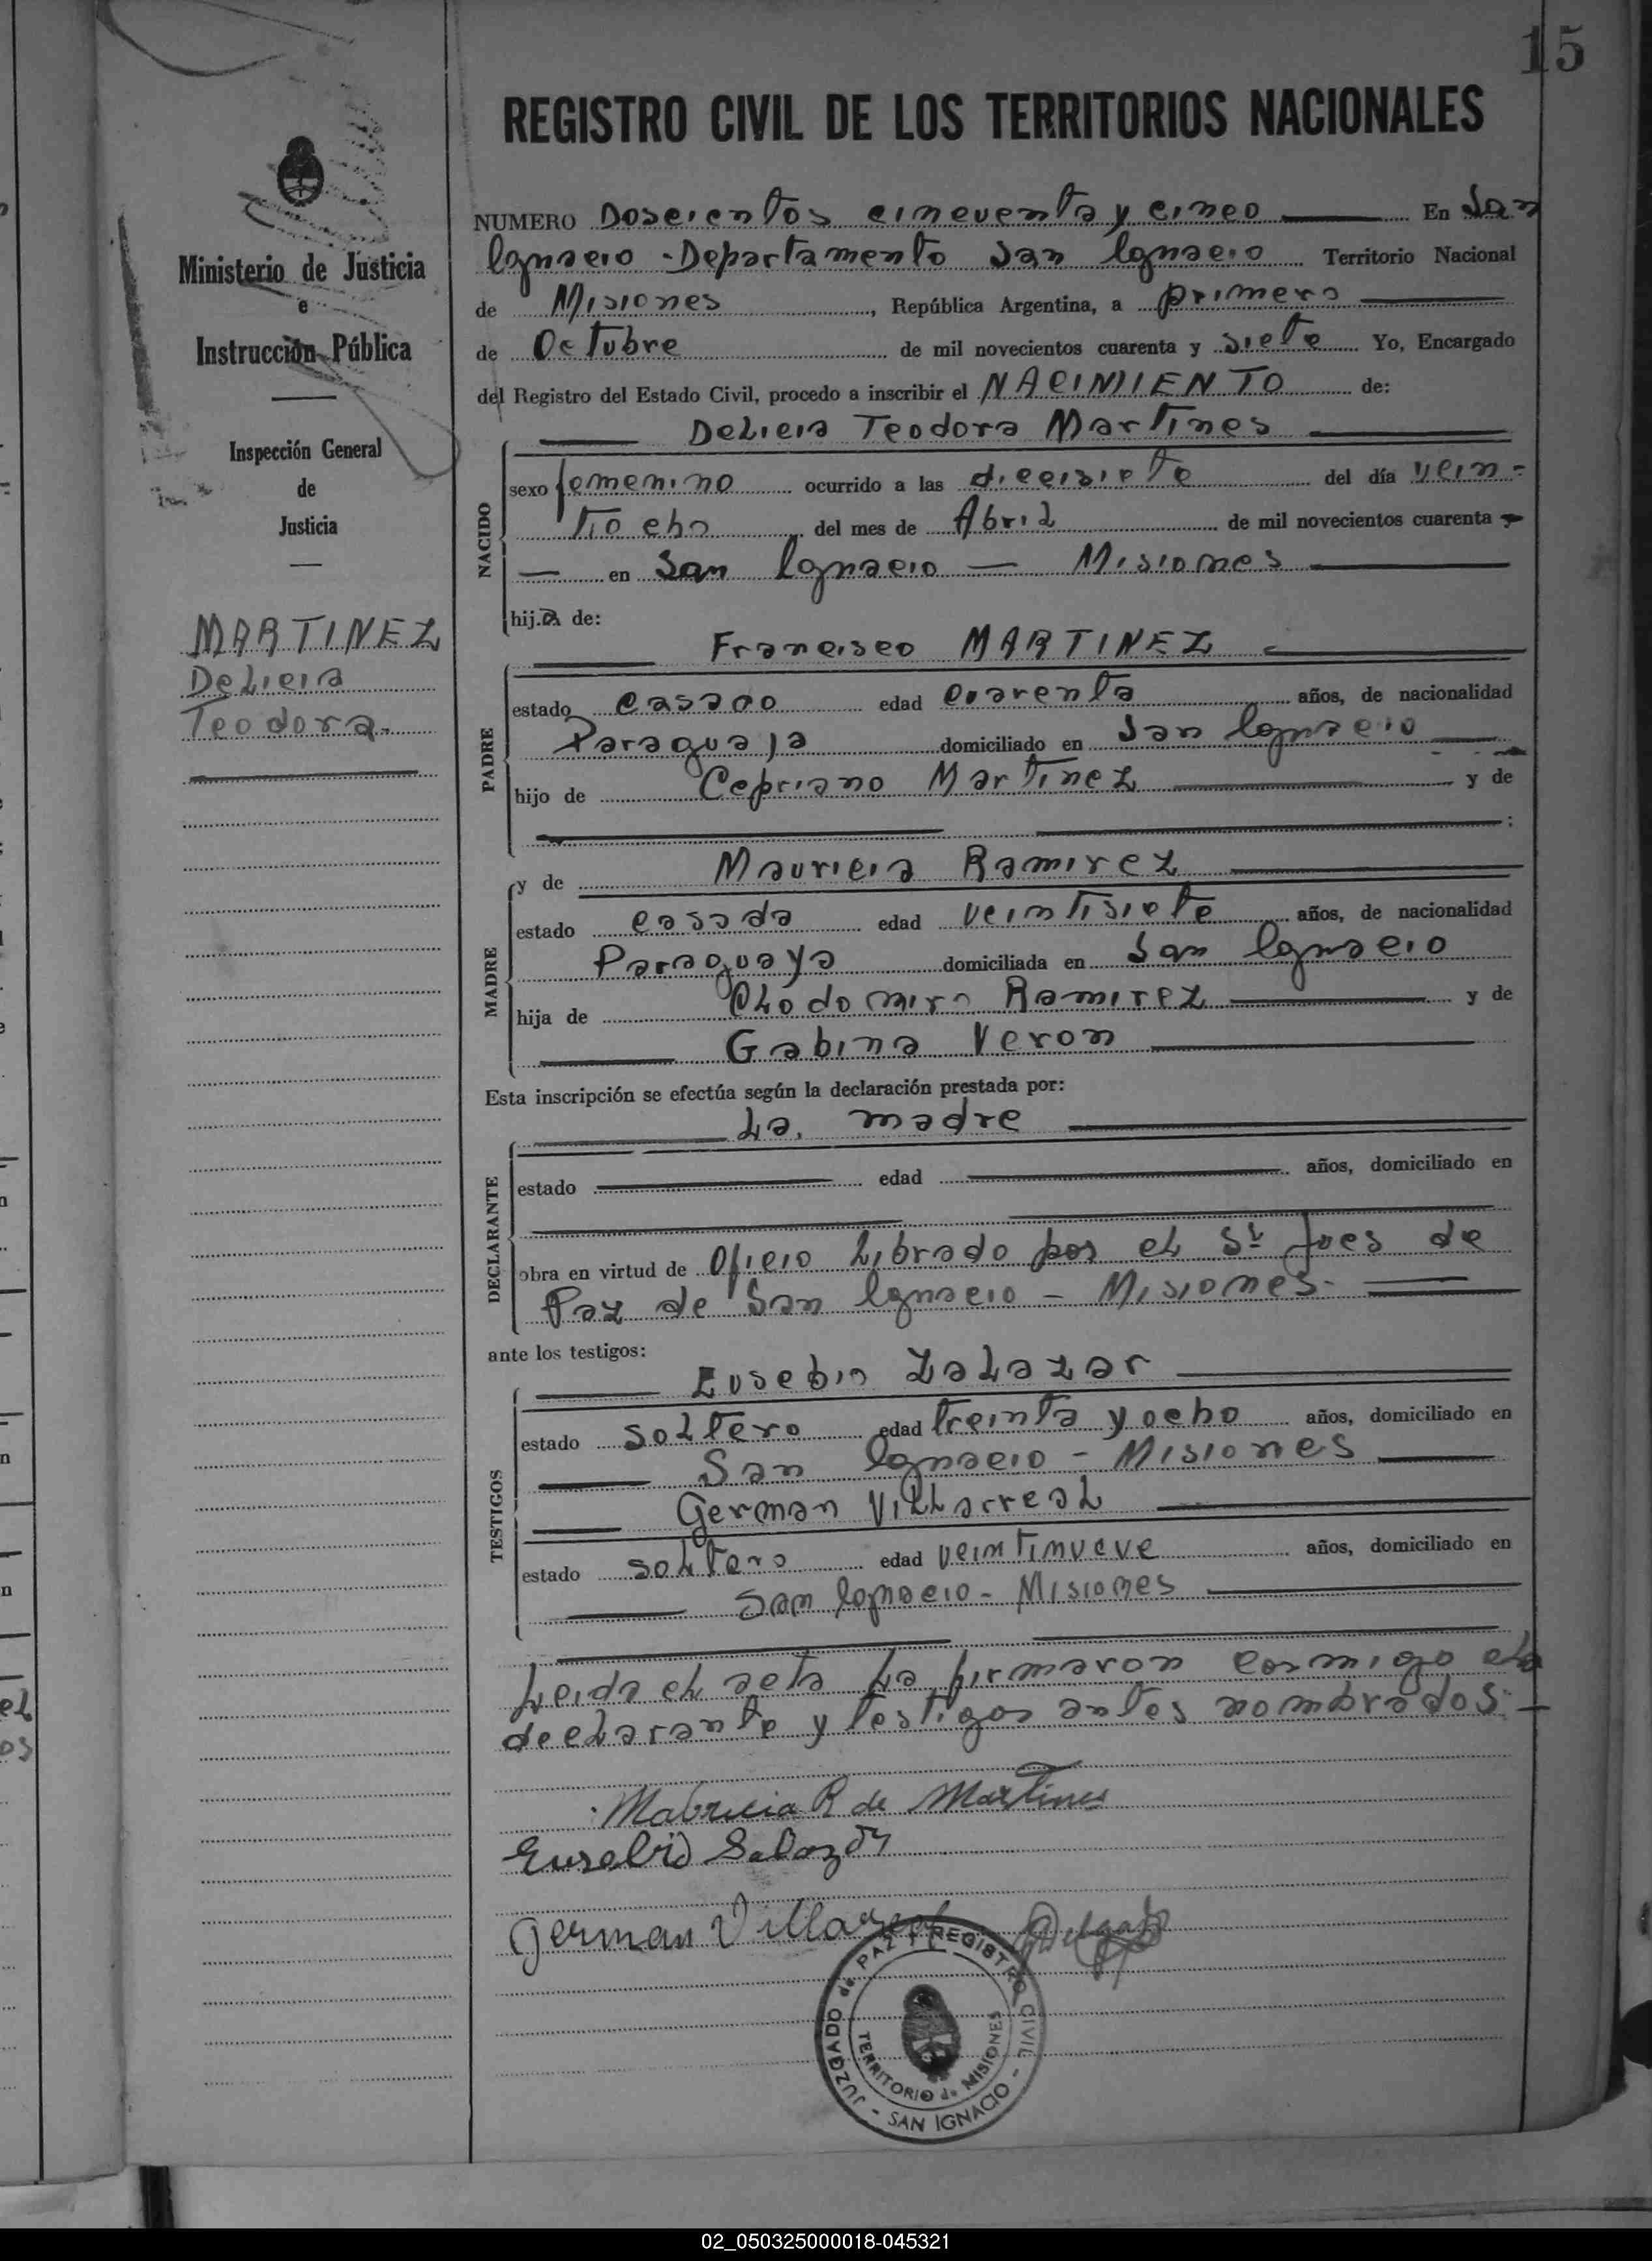 15
REGISTRO CIVIL DE LOS TERRITORIOS NACIONALES
Ministerio de Justicia
e
Instrucción Pública
Inspección General
de
Justicia
MARTINEZ
Delicia
Teodora.
NUMERO Doscientos cincuenta y cinco En San
Ignacio - Departamento San Ignacio Territorio Nacional
de Misiones, República Argentina, a primero
de Octubre de mil novecientos cuarenta y siete Yo, Encargado
del Registro del Estado Civil, procedo a inscribir el NACIMIENTO de:
Delicia Teodora Martines
NACIDO
sexo femenino ocurrido a las diecisiete del día vein-
tiocho del mes de Abril de mil novecientos cuarenta
en San Ignacio - Misiones
hija de:
Francisco MARTINEZ
PADRE
estado casado edad cuarenta años, de nacionalidad
Paraguaja domiciliado en San Ignacio
hijo de Cepriano Martinez y de
:
y de Mauricia Ramirez
MADRE
estado casada edad veintisiete años, de nacionalidad
Paraguaya domiciliada en San Ignacio
hija de Clodomiro Ramirez y de
Gabina Veron
Esta inscripción se efectúa según la declaración prestada por:
La madre
DECLARANTE
estado edad años, domiciliado en
obra en virtud de Oficio librado por el Sr Jues de
Paz de San Ignacio - Misiones-
ante los testigos:
Eusebio Zalazar
TESTIGOS
estado soltero edad treinta y ocho años, domiciliado en
San Ignacio - Misiones
German Villarreal
estado soltero edad veintinueve años, domiciliado en
San Ignacio - Misiones
Leida el acta la firmaron conmigo la
declarante y testigos antes nombrados.-
Mabricia R de Martines
Eusebio Salazar
German Villareal
JUZGADO de PAZ y REGISTRO CIVIL - SAN IGNACIO -
TERRITORIO de MISIONES
02_050325000018-045321